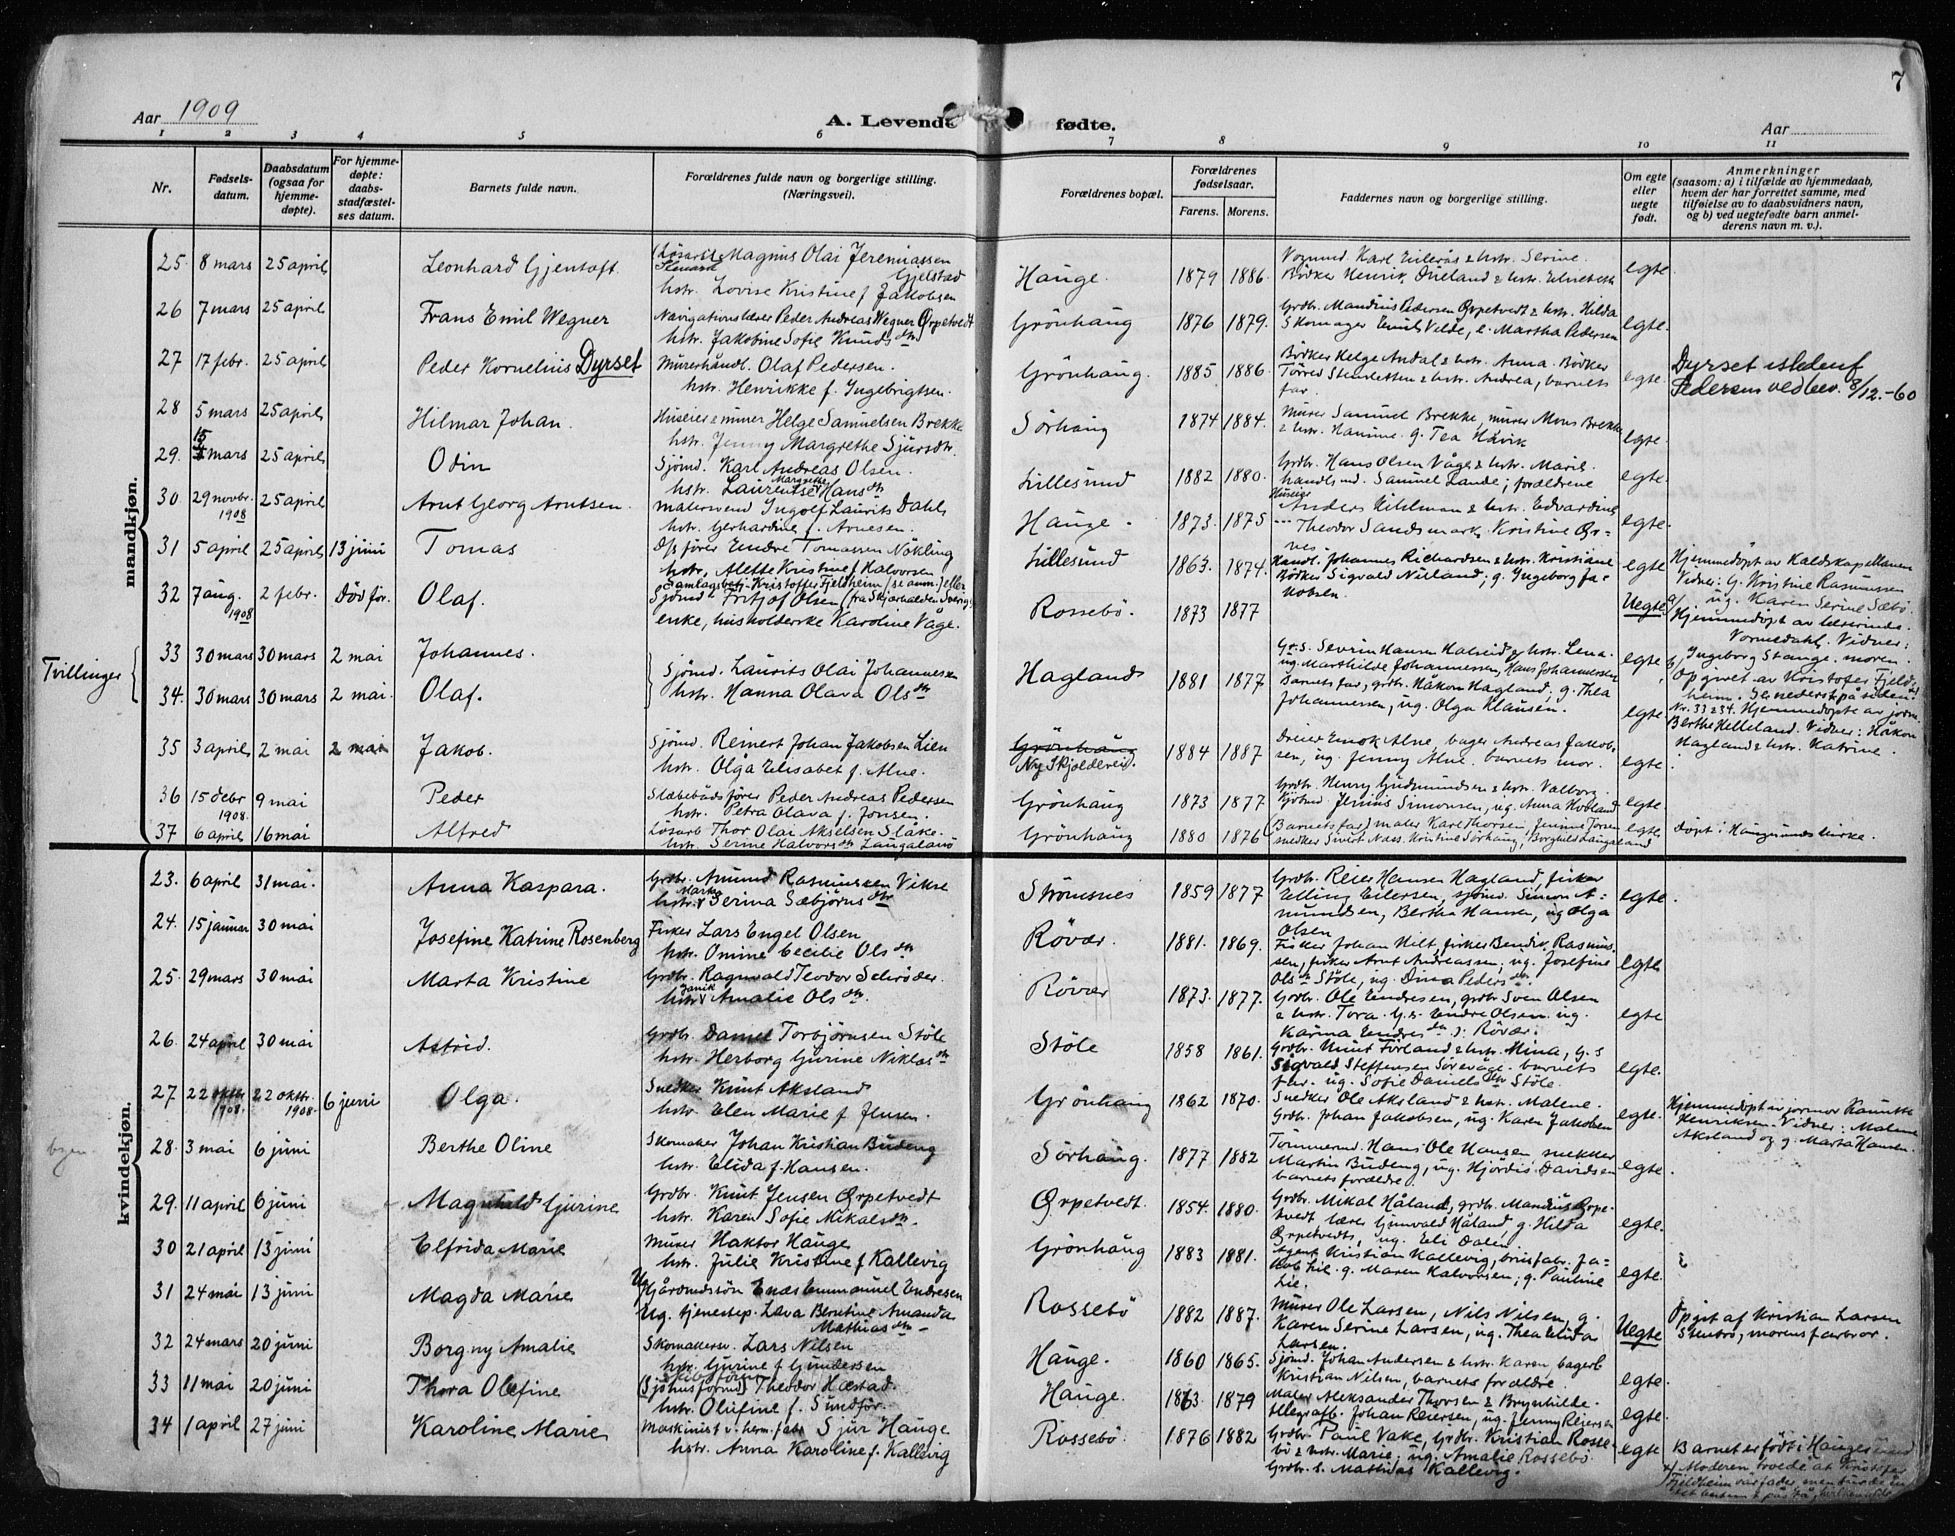 7
Aar 1909
A. Levende fødte.
Aar
1 2 3 4 5 6 7 8 9 10 11
Nr.
Fødsels-
datum.
Daabsdatum
(ogsaa for
hjemme-
døpte).
For hjemme-
døpte:
daabs-
stadfæstel-
ses datum.
Barnets fulde navn.
Forældrenes fulde navn og borgerlige stilling.
(Næringsvei).
Forældrenes bopæl.
Forældrenes
fødselsaar.
Farens. Morens.
Faddernes navn og borgerlige stilling.
Om egte
eller
uegte
født.
Anmerkninger
(saasom: a) i tilfælde av hjemmedaab,
hvem der har forrettet samme, med
tilføielse av to daabsvidners navn,
og b) ved uegtefødte barn anmel-
derens navn m. v.).
mandkjøn.
25. 8 mars 25 april Leonhard Gjentoft. Magnus Olai Jeremiassen
Gjelstad
hstr. Lovise Kristine f Jakobsen
Hauge 1879 1886. egte.
26 7 mars 25 april Frans Emil Wegner Navigationslærer Peder Andreas Wegner Ørpetvedt
hstr. Jakobine Sofie Knudsdtr
Grönhaug 1876 1879. Grdbr. Mandius Pedersen Ørpetvedt & hstr. Hilda
Skomager Emil Velde, e. Martha Pedersen
egte.
27 17 febr. 25 april Peder Kornelius Dyrset Murerhåndl. Olaf Pedersen.
hstr. Henrikke f. Ingebrigtsen.
Grönhaug. 1885 1886. Bödker Helge Andal & hstr. Anna. Bödker
& hstr. Andrea, barnets
far.
egte. Dyrset istedenf
Pedersen ved bev. 8/12.-60
28 5 mars 25 april Hilmar Johan. Huseier & murer Helge Samuelsen Brekke
hstr. Jenny Margrethe Sjursdtr.
Sörhaug 1874 1884. Murer Samuel Brekke, murer Mons Brekke
& hstr. Hanine. g. Tea Håvik
egte.
29. 15 mars 25 april Odin Sjömd. Karl Andreas Olsen.
hstr. Laurentse Margrethe Hansdtr
Lillesund 1882 1880. Grdbr. Hans Olsen Våge & hstr. Marie.
handlsmd. Samuel Lande; forældrene
egte.
30 29 novbr. 1908 25 april Arnt Georg Arntsen. Malersvend Ingolf Laurits Dahl
hstr. Gerhardine f. Arnesen.
Hauge. 1873. 1875 Huseier
Theodor Sandsmark, Kristine Ør-
egte.
31 5 april 25 april 13 juni Tomas D/s förer Endre Tomassen Nökling
hstr. Alette Kristine f Halvorsen
Lillesund 1863. 1874. Handl. Johannes Richardsen & hstr. Kristiane
Bödker Sigvald Nilsand; g. Ingeborg Ja-
kobsen.
egte Hjemmedöpt av Kaldskapellanen
Vidner: g. Kristine Rasmussen
ug. Karen Serine Sæbö.
32 7 aug. 1908 2 febr. Död för. Olaf. Samlagsbetj. Kristoffer Fjeldheim (se anm.) eller
Sjömd. Fritjof Olsen
enke, husholderske Karoline Våge.
Rossebö. 1873 1877 Uegte a/ Hjemmedöpt av lærerinde
Vormedahl. Vidner:
Ingeborg Stange, moren.
b/ Opgivet av Kristofer Fjeld-
heim.
Tvillinger
33 30 mars 30 mars 2 mai Johannes.
34. 30 mars 30 mars 2 mai. Olaf.
Sjömd. Laurits Olai Johannessen
hstr. Hanna Olava Olsdtr
Hagland 1881 1877 G.s. Severin Hansen Halseid & hstr. Lena.
ug. Marthilde Johannessen, Hans Johannessen
Barnets far, grdbr. Håkon Hagland; g. Thea
Johannessen, ug. Olga Klausen.
egte
egte
Nr. 33 & 34. Hjemmedöpte av jordm.
Berthe Helleland. Vidner: Håkon
Hagland & hstr. Katrine.
35 3 april 2 mai 2 mai Jakob. Sjömd. Reinert Johan Jakobsen Lien
hstr. Olga Elisabet f. Alne.
Grönhaug
Ny Skjoldereid. 1884 1887 Dreier Enok Alne, bager Andreas Jakob-
sen, ug. Jenny Alne, barnets mor.
egte
36 15 debr 1908. 9 mai Peder Slæbebådsförer Peder Andreas Pedersen
hstr. Petra Olava f. Jonsen.
Grönhaug 1873 1877 Grdbr. Henry Gudmundsen & hstr. Valborg.
Simonsen, ug. Anna Hovland
egte.
37 6 april 16 mai Alfred Lösarb. Thor Olai Akselsen Släke.
hstr. Serine Halvorsdtr Langeland
Grönhaug 1880 1876 (Barnets far) maler Karl Thorsen, Jenine Torsen
snedker Smst Nass, Kristine Sörhaug, Borghild Langeland
egte döpt i Haugesunds kirke.
kvindekjøn.
23. 6 april 31 mai. Anna Kaspara. Grdbr. Amund Rasmussen Vikse
hstr. Marta Serina Sæbjörnsdtr
Strömsnes 1859 1877 Grdbr. Reier Hansen Hagland, fisker
Elling Eilersen, sjömd. Simon A-
mundsen, Bertha Hansen, ug Olga
Olsen
egte.
24. 15 januar 30 mai Josefine Katrine Rosenberg Fisker Lars Engel Olsen
hstr. Omine Cecilie Olsdtr
Rövær. 1881. 1869. Fisker Johan Hilt, fisker Bendix Rasmus-
sen, fisker Arnt Andreassen, ug. Josefine
Olsdtr Stöle, ug. Dina Pedersdtr.
egte
25. 29 mars 30 mai Marta Kristine Grdbr. Ragnvald Teodor Schröder
hstr. Janik Amalie Olsdtr.
Rövær 1873. 1877. Grdbr. Ole Endresen, grdbr. Sven Olsen
& hstr. Tora. G.s. Endre Olsen ug.
Karina Endresdtr. Rövær.
egte
26. 24 april 30 mai Astrid. Grdbr. Daniel Torbjörnsen Stöle
hstr. Herborg Gurine Niklasdtr
Stöle 1858 1861. Grdbr. Knut Förland & hstr. Mina, g.s
Sigvald Steffensen Sörevåge. barnets
far. ug. Sofie Danielsdtr Stöle.
egte.
27 22 oktbr 1908. 22 oktbr. 1908. 6 juni Olga. Snedker Knut Aksland
hstr. Elen Marie f Jensen.
Grönhaug 1862 1870. Snedker Ole Aksland & hstr. Malene.
Grdbr. Johan Jakobsen, ug. Karen Jakobsen
egte. Hjemmedöpt av jormor
Henriksen. Vidner: Malene
Aksland og g. Marta Hansen.
byen.
28. 3 mai 6 juni Berthe Oline Skomaker Johan Kristian Budeng
hstr. Elida f. Hansen.
Sörhaug. 1877 1882 Tömmermd. Hans Ole Hansen, snekker
Martin Budeng, ug. Hjördis Davidsen
barnets forældre.
egte.
29. 11 april 6 juni Magnhild Gurine Grdbr. Knut Jensen Ørpetvedt
hstr. Karen Sofie Mikalsdtr.
Ørpetvedt 1854. 1880. Grdbr. Mikal Håland, grdbr. Mandius Ørpe-
tvedt lærer Gunvald Håland g. Hilda
Ørpetvedt, ug. Eli Dalen
egte.
30 21 april 13 juni Elfrida Marie Murer Haktor Hauge
hstr. Julie Kristine f Kallevig
Grönhaug 1883 1881. Agent Kristian Kallevig, brusfabr. Ja-
kob Lie. g. Maren Halvorsen; g. Pauline
Lie.
egte.
31 24 mai 13 juni Magda Marie Ug. gårdmandssön Enæs Emmanuel Endresen
Ug. tjenestep. Lava Berntine Amanda
Mathiasdtr.
Rossebö 1882 1887. Murer Ole Larsen, Nils Nilsen, g.
Karen Serine Larsen, ug. Thea Elida
Larsen.
Uegte Opgit af Kristian Larsen
Stenbrö, morens farbror.
32 24 mars 20 juni Borgny Amalie Skomakersv. Lars Nilsen
hstr. Gurine f Gundersen
Hauge. 1860 1865. Sjömd. Johan Andersen & hstr. Karen, bagerl.
Kristian Nilsen, barnets forældre.
egte.
33 11 mai 20 juni Thora Olefine (Sjöhusformd) Theodor Hæstad.
hstr. Olufine f. Sundför.
Hauge. 1863. 1879 Maler Aleksander Thorsen & Brynhilde.
telegrafb. Johan Reiersen, ug. Jenny Reiersen
egte.
34 1 april 27 juni Karoline Marie Maskinist v. herm. fabr Sjur Hauge
hstr. Anna Karoline f. Kallevig
Rossebö. 1876 1882 Grdbr. Paul Vake, Grdbr. Kristian Rosse-
bö & hstr. Marie, ug. Amalie Rossebö
Grdbr. s. Mathias Kallevig.
egte Barnet er födt i Haugesund
x) Moderen troede at Kristofer
Fjeldheim var fader, men